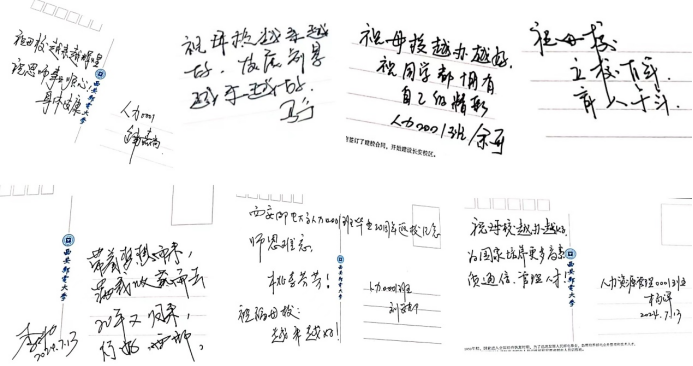 祝母校越来越辉煌
祝恩师事事顺心!
身体健康
人力0001
西安邮电大学
祝母校越来越
好,发展前景
越来越好.
祝母校越办越好.
祝同学都拥有
自己的精彩
人力0001班 余
签订了建校合同,开始建设长安校区。
祝母校
立校百年
育人千斗.
西安邮电大学
带着梦想而来,
满载收获而去
20年又归来,
2024.7.13
西安邮电大学人力0001班毕业20周年返校纪念
师恩难忘
桃李芬芳!
祝福母校:
越来越好!
西安邮电大学
人力0001班
祝母校越办越好
为国家培养更多高素
质通信、管理人才!
西安邮电大学
人力资源管理0001班
2024.7.13